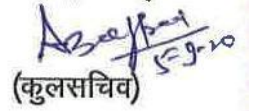 5-9-20
(कुलसचिव)